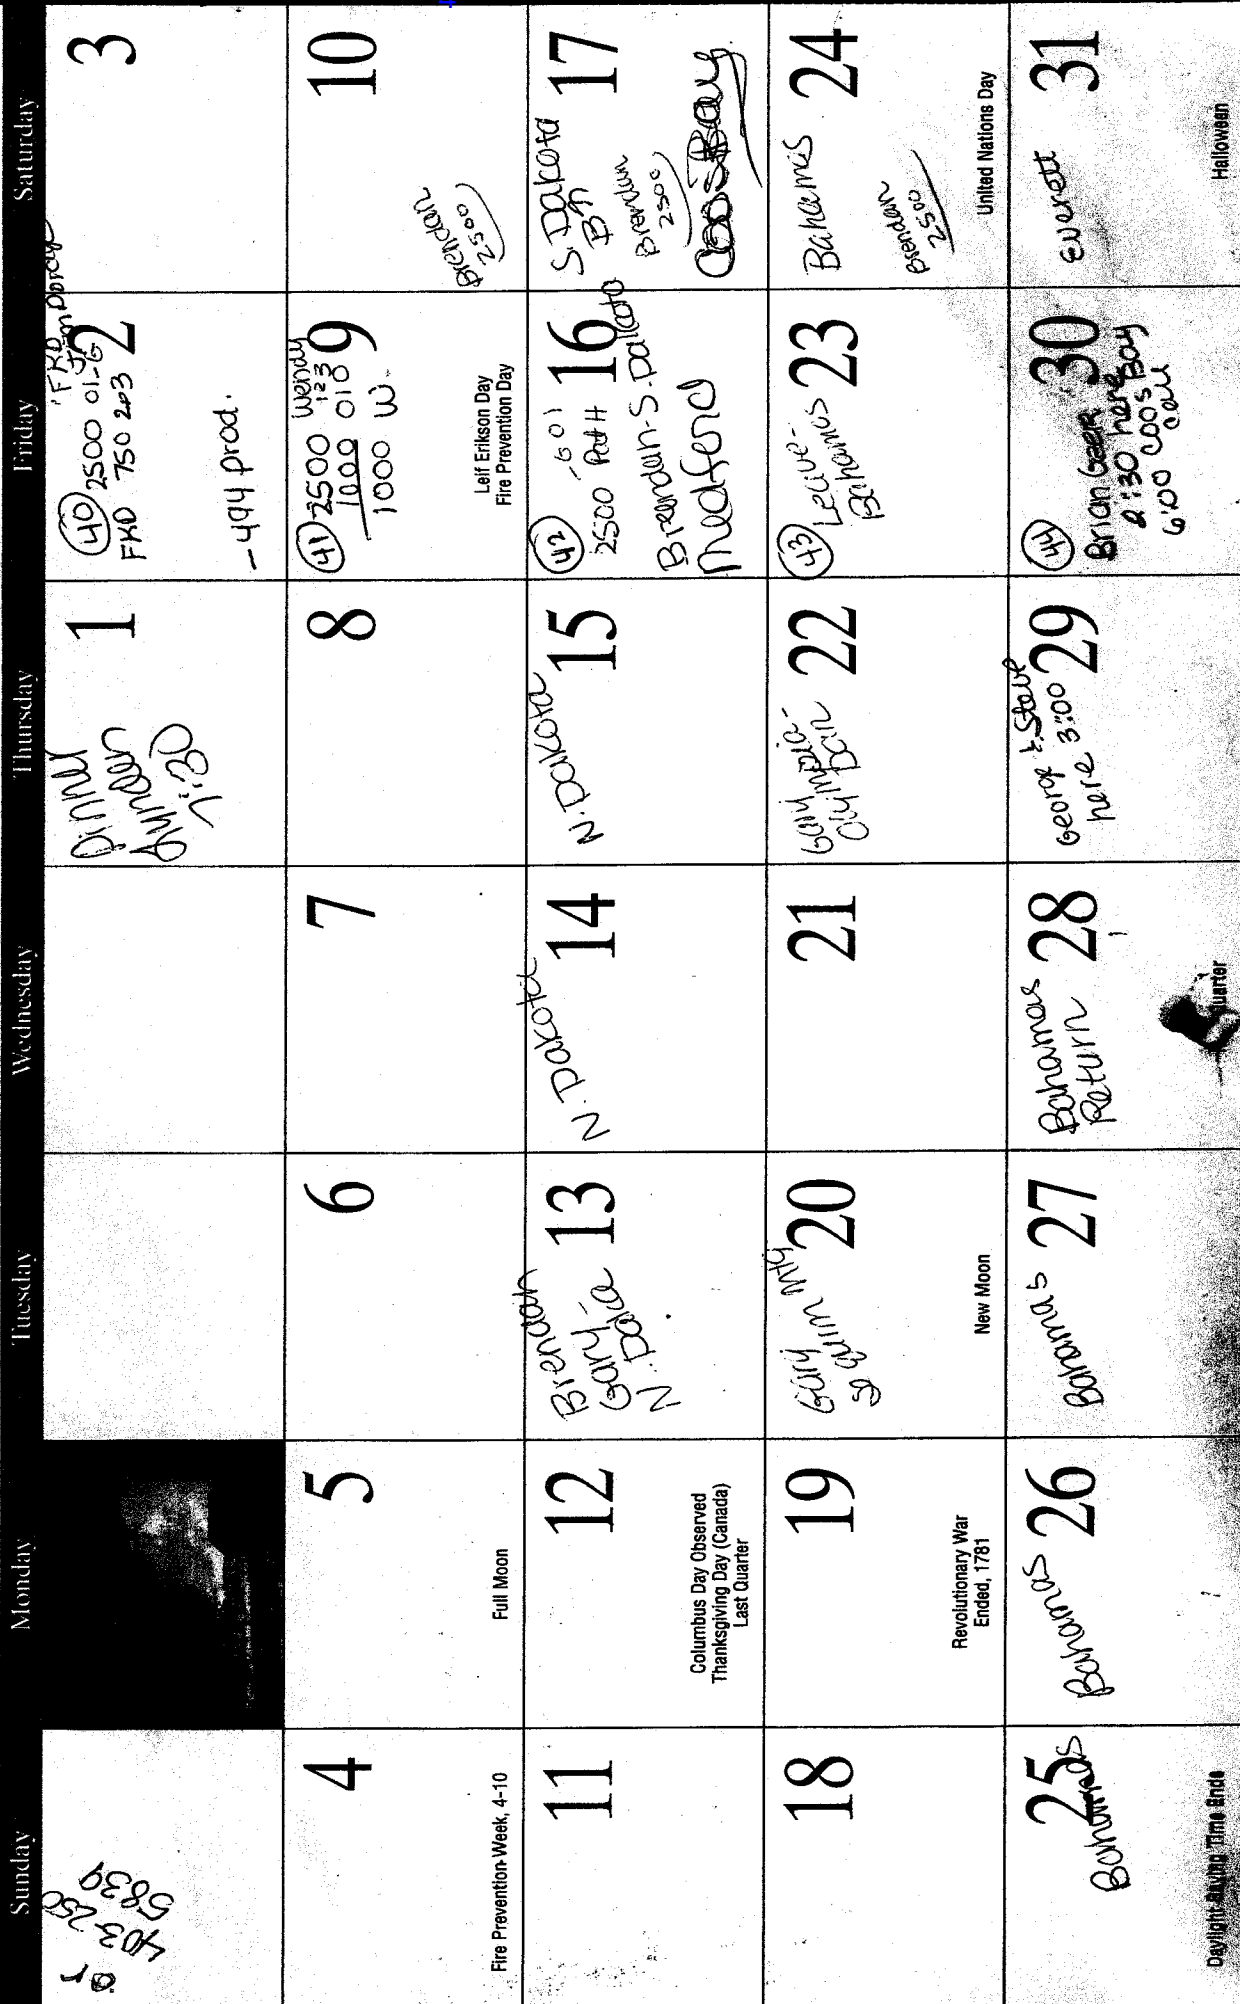 Sunday Monday Tuesday Wednesday Thursday Friday Saturday
or
403-250
5839
1
Dinner
7:30
2
40
2500 01-6
FKD 750 203
-494 prod.
3
4
Fire Prevention Week, 4-10
5
Full Moon
6
7
8
9
41
2500 Wendy
123
1000 010
1000 W.
Leif Erikson Day
Fire Prevention Day
10
Brendan
2500
11
12
Columbus Day Observed
Thanksgiving Day (Canada)
Last Quarter
13
Brendan
Gary-
14
N. Dakota
15
N. Dakota
16
42
-601
2500 Pat H
Brendan-S. Dakota
Medford
17
S. Dakota
Bn
Brendan
2500
Coos Bay
18
19
Revolutionary War
Ended, 1781
20
Gary
New Moon
21
22
Gary
23
43
Leave-
Bahamas
24
Bahamas
Brendan
2500
United Nations Day
25
Bahamas
Daylight-Saving Time Ends
26
Bahamas
27
Bahamas
28
Bahamas
Return
Quarter
29
George & Steve
here 3:00
30
44
Brian Geer
2:30 here
6:00 Coos Bay
call
31
Everett
Halloween